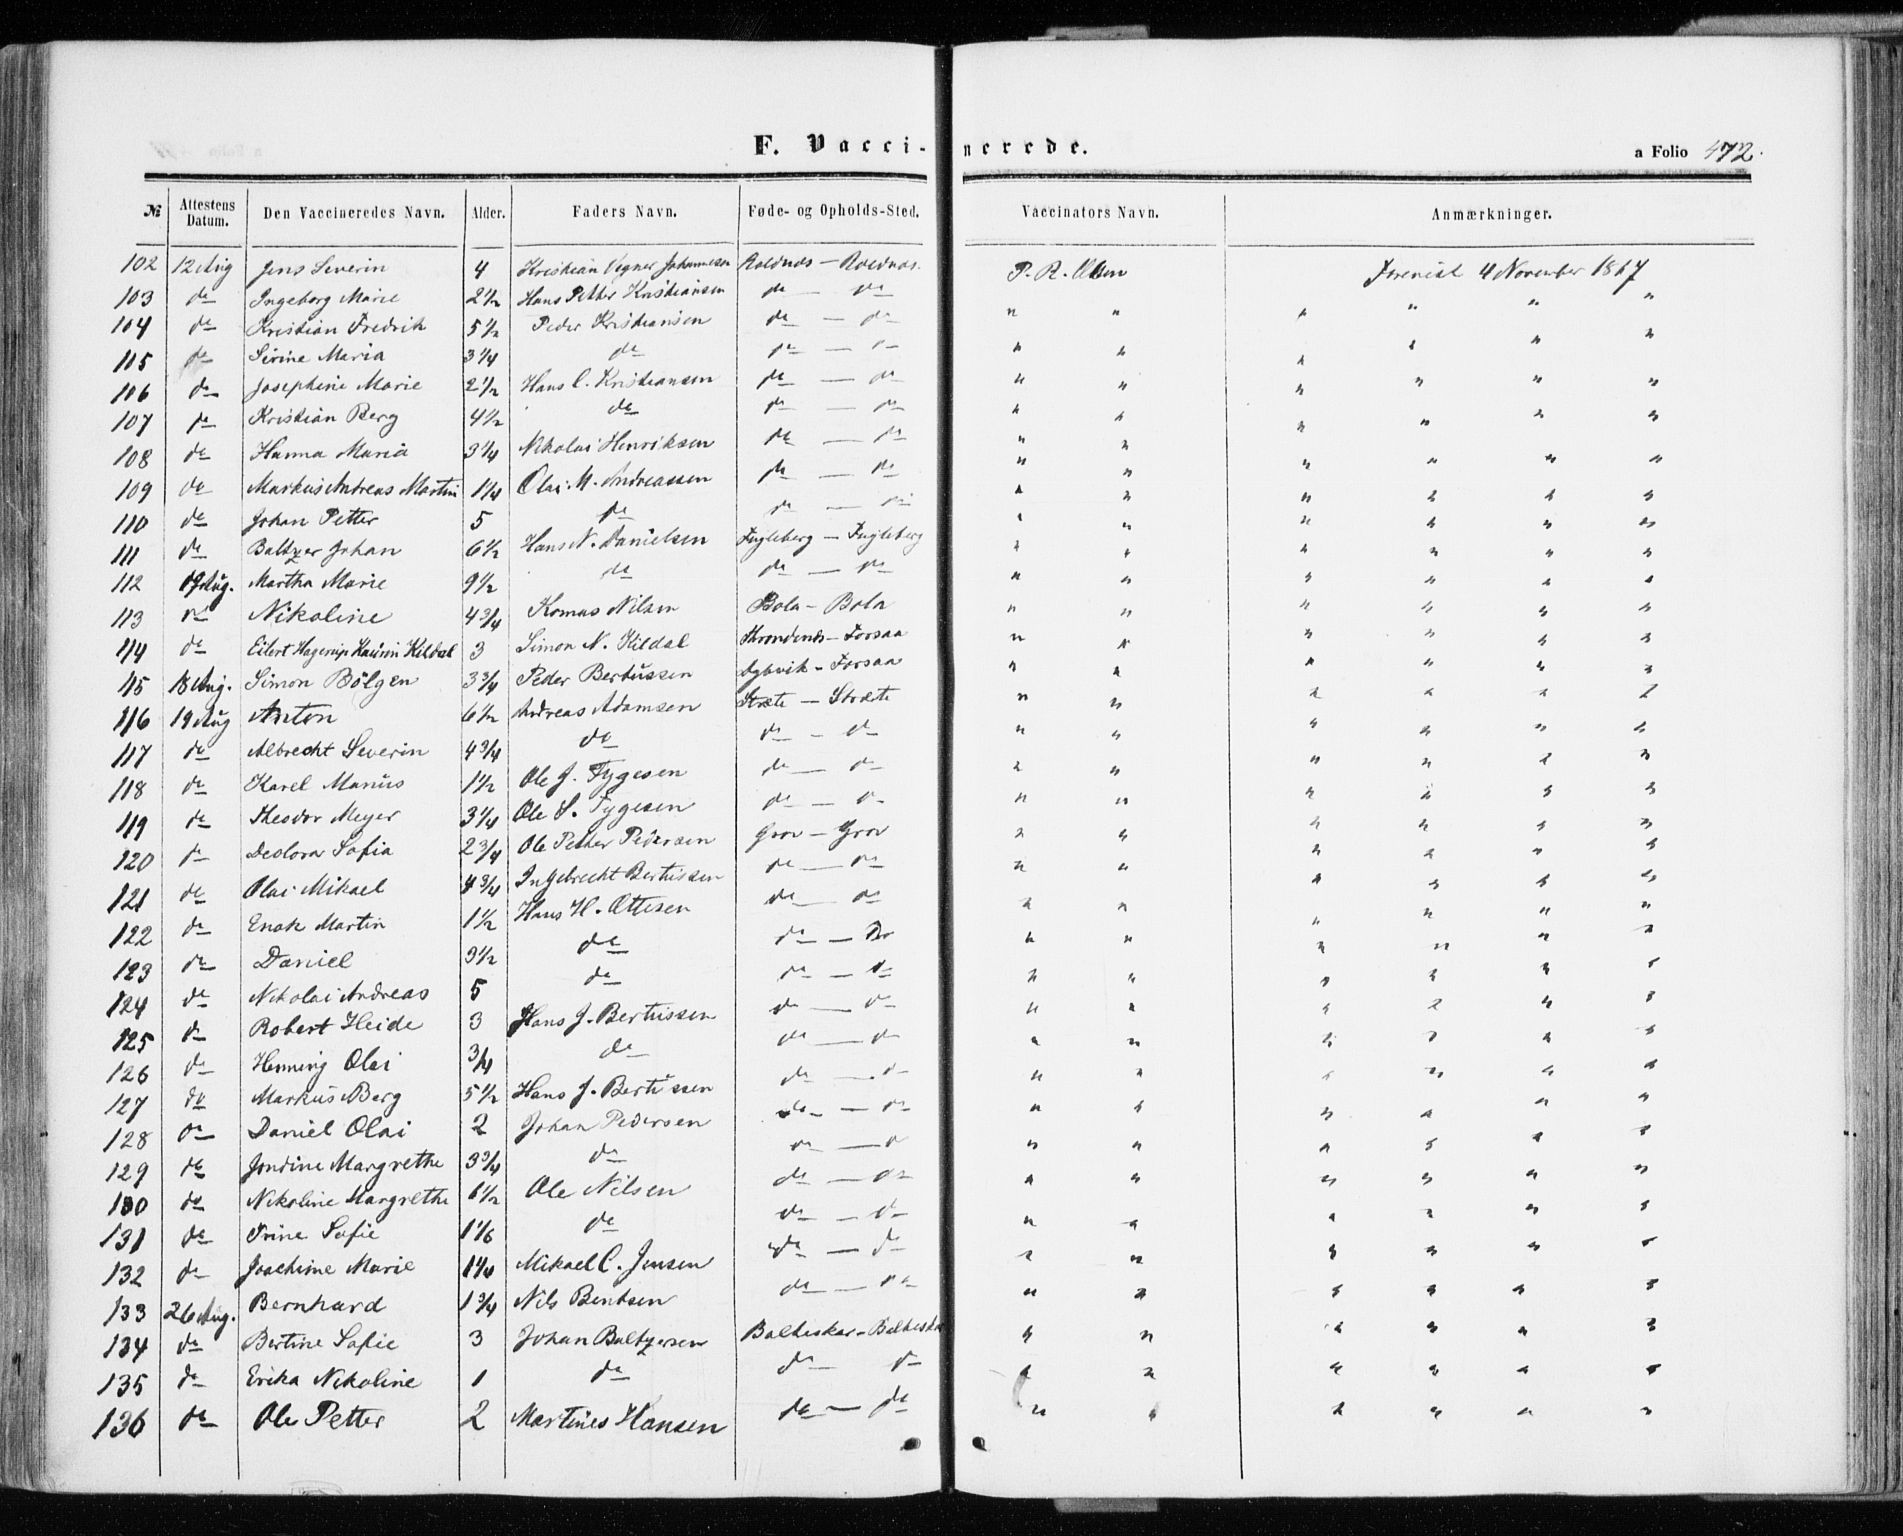 F. Vaccinerede.
a Folio 472.
№ Attestens Datum. Den Vaccineredes Navn. Alder. Faders Navn. Føde- og Opholds-Sted. Vaccinators Navn. Anmærkninger.
102 12 Aug Jens Severin 4 Kristian Vegner Johannesen Roldnæs — Roldnæs. P. R. Olsen 4 November 1867
103 do Ingeborg Marie 2 1/2 Hans Petter Kristiansen do — do " " " " " "
104 do Kristian Fredrik 5 1/2 Peder Kristiansen do — do " " " " " "
105 do Sirine Maria 3 1/4 do do — do " " " " " "
106 do Josephine Marie 2 1/2 Hans C. Kristiansen do — do " " " " " "
107 do Kristian Berg 4 1/2 do do — do " " " " " "
108 do Hanna Maria 3 1/4 Nikolai Henriksen do — do " " " " " "
109 do Markus Andreas Martin 1 1/4 Olai M. Andreassen do — do " " " " " "
110 do Johan Petter 5 do do — do " " " " " "
111 do Baltzer Johan 6 1/2 Hans N. Danielsen Fugleberg — Fugleberg " " " " " "
112 17 Aug. Martha Marie 9 1/2 do do — do " " " " " "
113 do Nikoline 4 3/4 Komas Nilsen Bola — Bola " " " " " "
114 do Eilert Hagerup Kildal 3 Simon N. Kildal Throndenæs — Forsaa " " " " " "
115 18 Aug. Simon Bölgen 3 3/4 Peder Bertussen Dybvik — Forsaa " " " " " "
116 19 Aug Anton 6 1/2 Andreas Adamsen Stræte — Stræte " " " " " "
117 do Albrecht Severin 4 3/4 do do — do " " " " " "
118 do Karel Marius 1 1/2 Ole J. Tygesen do — do " " " " " "
119 do Theodor Meyer 3 1/4 Ole S. Tygesen do — do " " " " " "
120 do Deolora Sofia 2 3/4 Ole Petter Pedersen Grov — Grov " " " " " "
121 do Olai Mikael 4 3/4 Ingebrecht Bertussen do — do " " " " " "
122 do Enok Martin 1 1/2 Hans H. Ottesen do — do " " " " " "
123 do Daniel 3 1/2 do do — do " " " " " "
124 do Nikolai Andreas 5 do do — do " " " " " "
125 do Robert Heide 3 Hans J. Bertussen do — do " " " " " "
126 do Henning Olai 3/4 do do — do " " " " " "
127 do Markus Berg 5 1/2 Hans J. Bertussen do — do " " " " " "
128 do Daniel Olai 2 Johan Pedersen do — do " " " " " "
129 do Jondine Margrethe 3 3/4 do do — do " " " " " "
130 do Nikoline Margrethe 6 1/2 Ole Nilsen do — do " " " " " "
131 do Trine Sofie 1 1/6 do do — do " " " " " "
132 do Joachime Marie 1 1/4 Mikael C. Jensen do — do " " " " " "
133 26 Aug. Bernhard 1 3/4 Nils Bentsen do — do " " " " " "
134 do Bertine Sofie 3 Johan Baltzersen Balteskar — Balteskar " " " " " "
135 do Erika Nikoline 1 do do do " " " " " "
136 do Ole Petter 2 Martines Hansen do — do " " " " " "